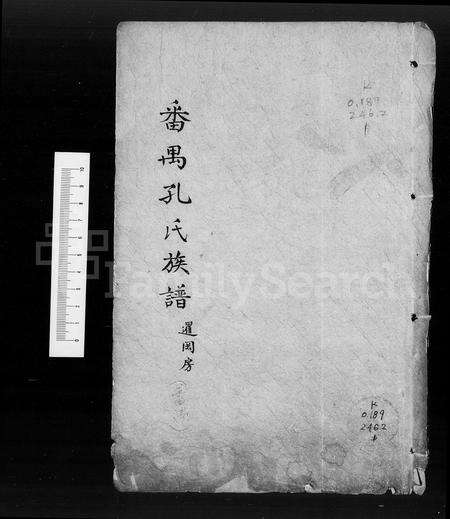 番禺孔氏族譜
暹岡房
K
0.189
246.2
K
0.189
246.2
FamilySearch